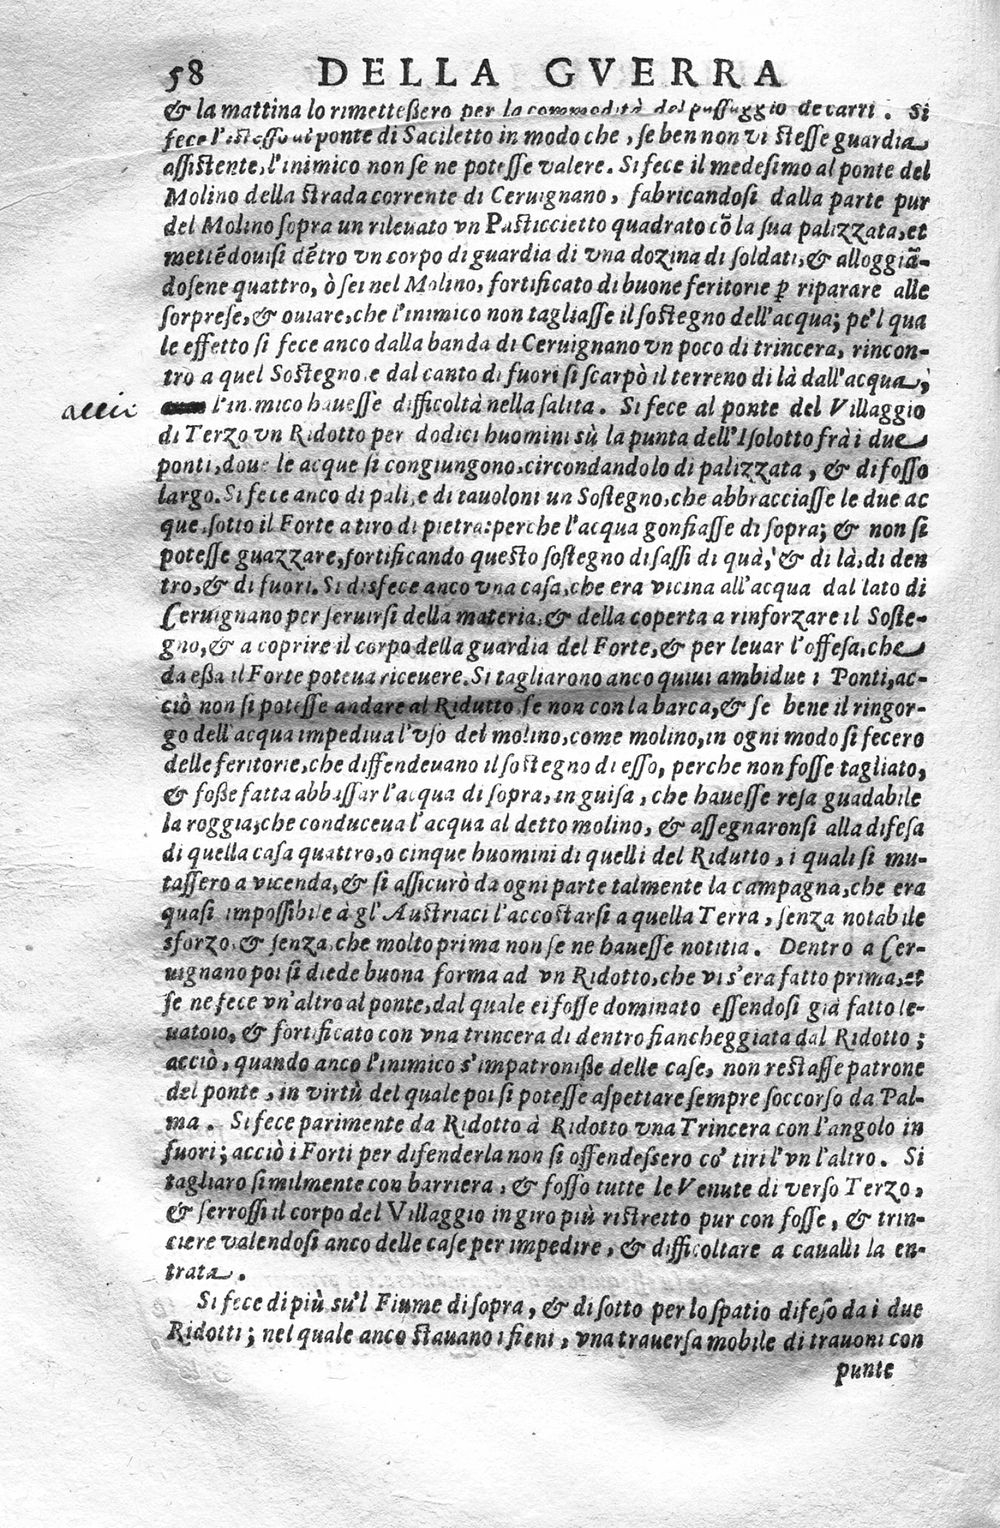 58 DELLA GVERRA
& la mattina lo rimetteßero per la commodità del passaggio de carri. Si
fece l'istesso al ponte di Saciletto in modo che, se ben non vi stesse guardia
assistente, l'inimico non se ne potesse valere. Si fece il medesimo al ponte del
Molino della strada corrente di Ceruignano, fabricandosi dalla parte pur
del Molino sopra un rileuato vn Pasticcietto quadrato cō la sua palizzata, et
mettēdouisi dētro vn corpo di guardia di una dozina di soldati, & alloggiā-
dosene quattro, ò sei nel Molino, fortificato di buone feritorie ꝑ riparare alle
sorprese, & ouiare, che l'inimico non tagliasse il sostegno dell'acqua; pe'l qua
le effetto si fece anco dalla banda di Ceruignano vn poco di trincera, rincon-
tro a quel Sostegno, e dal canto di fuori si scarpò il terreno di là dall'acqua,
acciò l'inimico hauesse difficoltà nella salita. Si fece al ponte del Villaggio
di Terzo vn Ridotto per dodici huomini sù la punta dell'Isolotto frà i due
ponti, doue le acque si congiungono, circondandolo di palizzata, & di fosso
largo. Si fece anco di pali, e di tauoloni un Sostegno, che abbracciasse le due ac
que, sotto il Forte a tiro di pietra: perche l'acqua gonfiasse di sopra; & non si
potesse guazzare, fortificando questo sostegno di sassi di quà, & di là, di den
tro, & di fuori. Si disfece anco vna casa, che era vicina all'acqua dal lato di
Ceruignano per seruirsi della materia, & della coperta a rinforzare il Soste-
gno, & a coprire il corpo della guardia del Forte, & per leuar l'offesa, che
da eßa il Forte poteua riceuere. Si tagliarono anco quiui ambidue i Ponti, ac-
ciò non si potesse andare al Ridutto, se non con la barca, & se bene il ringor-
go dell'acqua impediua l'vso del molino, come molino, in ogni modo si fecero
delle feritorie, che diffendeuano il sostegno di esso, perche non fosse tagliato,
& foße fatta abbassar l'acqua di sopra, in guisa, che hauesse resa guadabile
la roggia, che conduceua l'acqua al detto molino, & assegnaronsi alla difesa
di quella casa quattro, o cinque huomini di quelli del Ridutto, i quali si mu-
tassero a vicenda, & si assicurò da ogni parte talmente la campagna, che era
quasi impossibile à gl'Austriaci l'accostarsi a quella Terra, senza notabile
sforzo, & senza, che molto prima non se ne hauesse notitia. Dentro a Cer-
uignano poi si diede buona forma ad vn Ridotto, che vi s'era fatto prima, et
se ne fece vn'altro al ponte, dal quale ei fosse dominato essendosi già fatto le-
uatoio, & fortificato con vna trincera di dentro fiancheggiata dal Ridotto;
acciò, quando anco l'inimico s'impatroniße delle case, non restasse patrone
del ponte, in virtù del quale poi si potesse aspettare sempre soccorso da Pal-
ma. Si fece parimente da Ridotto à Ridotto vna Trincera con l'angolo in
fuori; acciò i Forti per difenderla non si offendessero co' tiri l'vn l'altro. Si
tagliaro similmente con barriera, & fosso tutte le Venute di verso Terzo,
& serrossi il corpo del Villaggio in giro più ristretto pur con fosse, & trin-
ciere valendosi anco delle case per impedire, & difficoltare a caualli la en-
trata.
Si fece di più su'l Fiume di sopra, & di sotto per lo spatio difeso da i due
Ridotti; nel quale anco stauano i fieni, vna trauersa mobile di trauoni con
punte